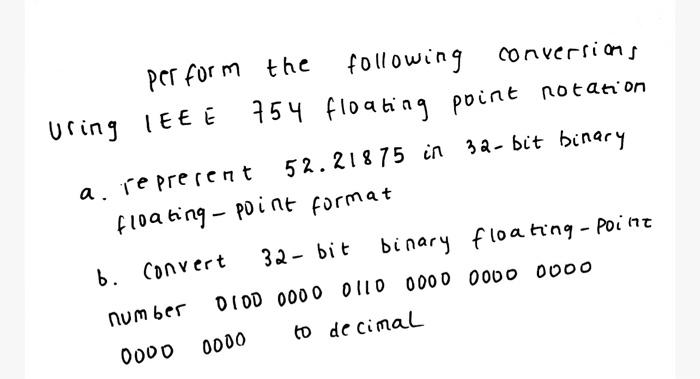 perform the following conversions
using IEEE 754 floating point notation
a. represent 52.21875 in 32-bit binary
floating-point format
b. convert 32-bit binary floating-point
number 0100 0000 0110 0000 0000 0000
0000 0000 to decimal